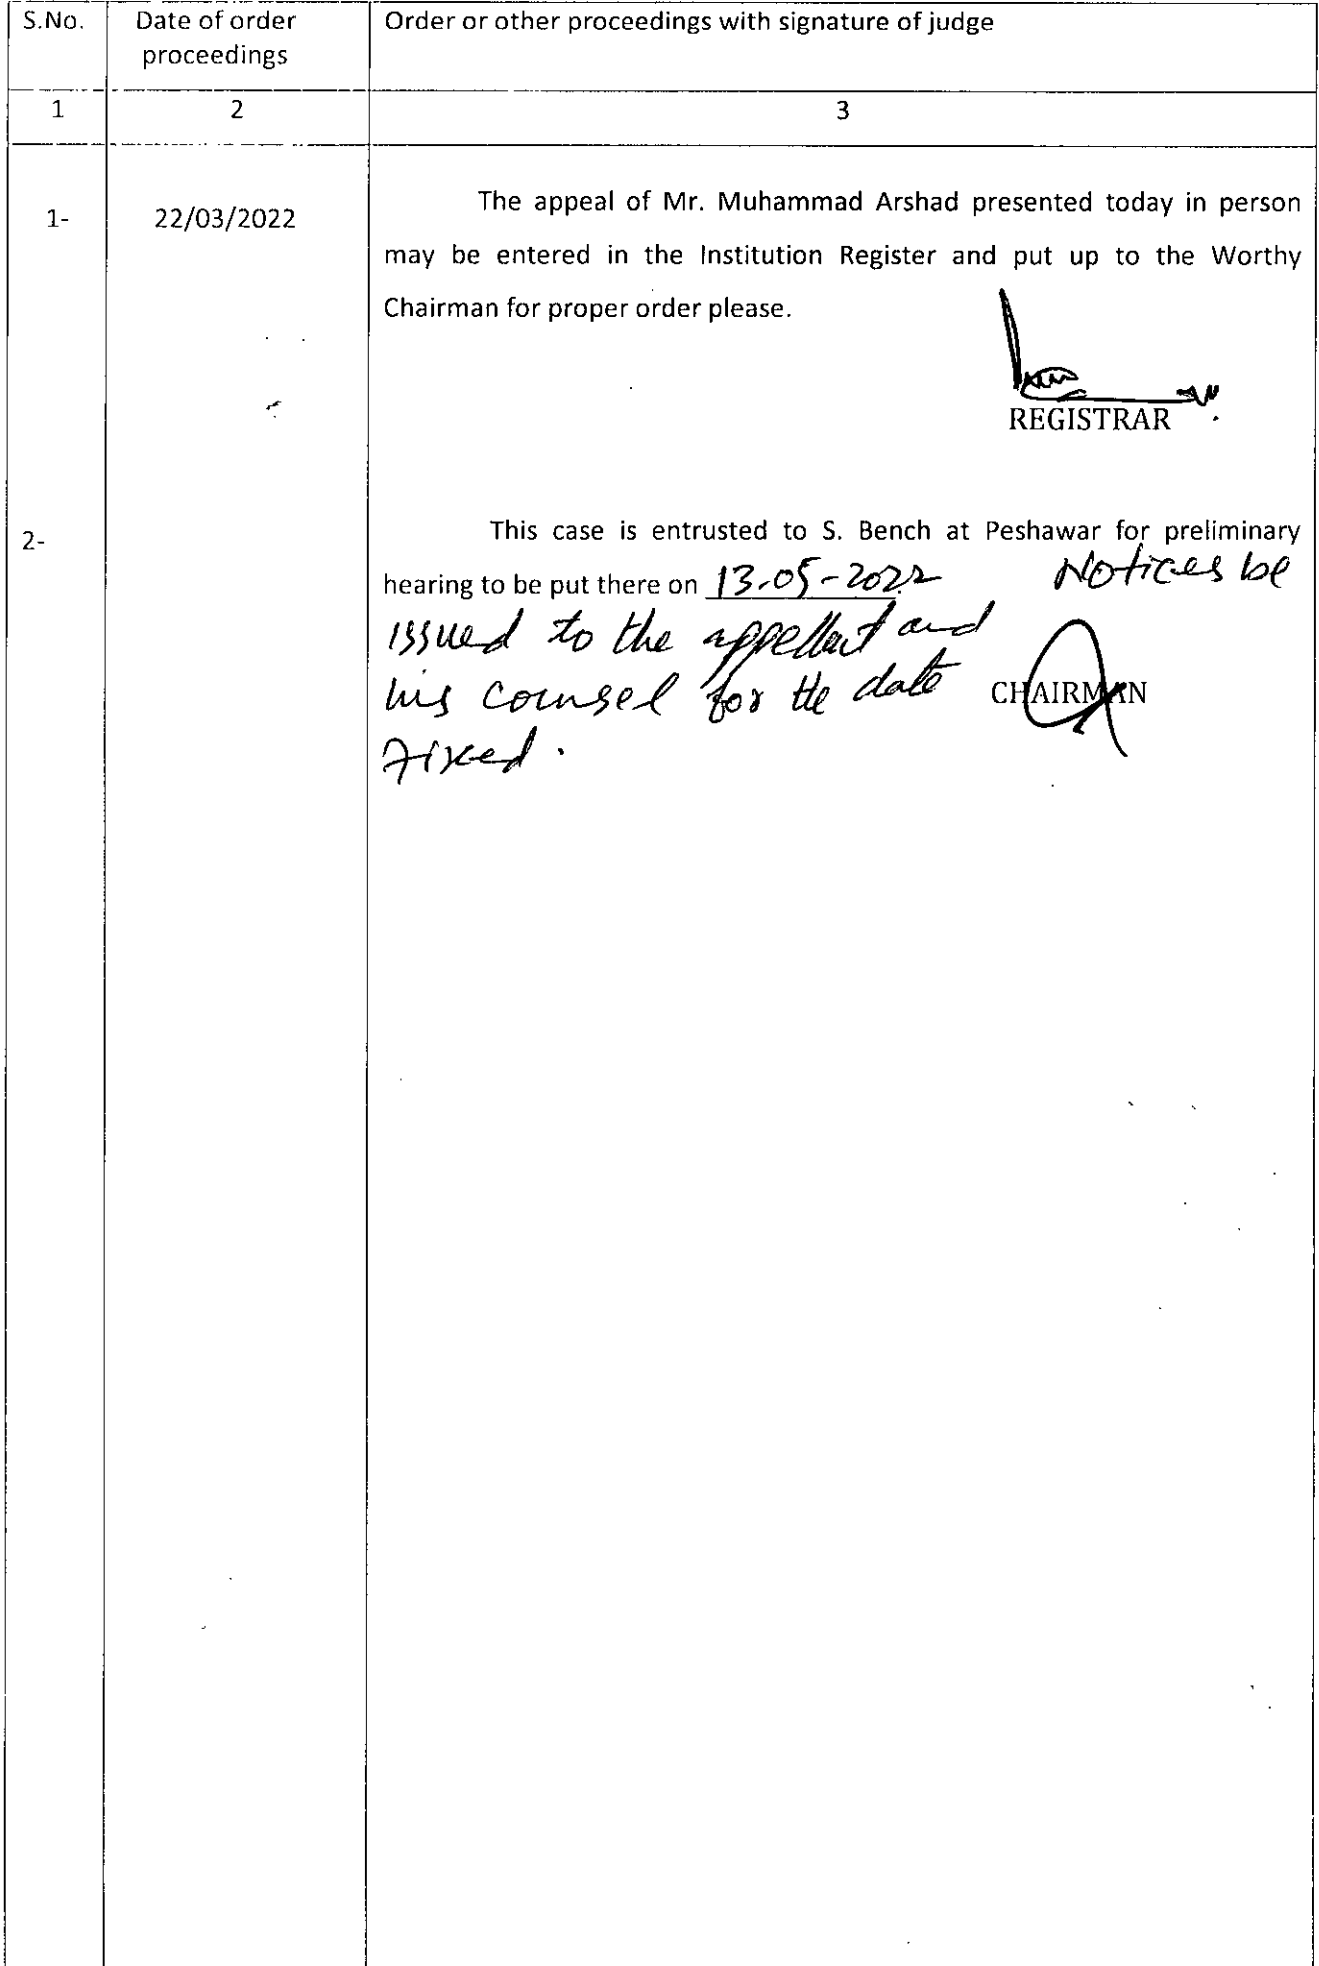 S.No. Date of order Order or other proceedings with signature of judge
proceedings
1 2 3
1- 22/03/2022 The appeal of Mr. Muhammad Arshad presented today in person
may be entered in the Institution Register and put up to the Worthy
Chairman for proper order please.
REGISTRAR
2- This case is entrusted to S. Bench at Peshawar for preliminary
hearing to be put there on 13-05-2022 Notices be
issued to the appellant and
his counsel for the date
CHAIRMAN
fixed.